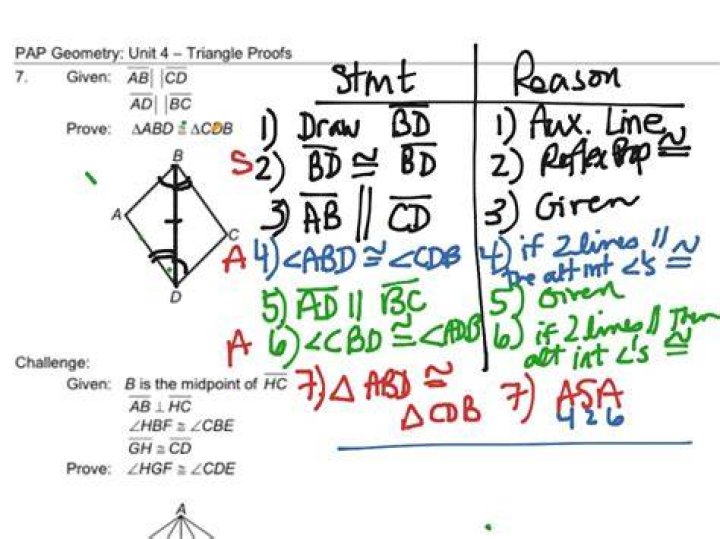 PAP Geometry: Unit 4 – Triangle Proofs
7. Given: AB || CD
AD || BC
Prove: ΔABD ≅ ΔCDB
B
A
C
D
Stmt Reason
1) Draw BD 1) Aux. Line
S 2) BD ≅ BD 2) Reflex Prop ≅
3) AB || CD 3) Given
A 4) <ABD ≅ <CDB 4) if 2 lines //
alt int <'s ≅
5) AD || BC 5) Given
A 6) <CBD ≅ <ADB 6) if 2 lines // Then
alt int <'s ≅
7) Δ ABD ≅ 7) ASA
Δ CDB 4 2 6
Challenge:
Given: B is the midpoint of HC
AB ⊥ HC
∠HBF ≅ ∠CBE
GH ≅ CD
Prove: ∠HGF ≅ ∠CDE
A